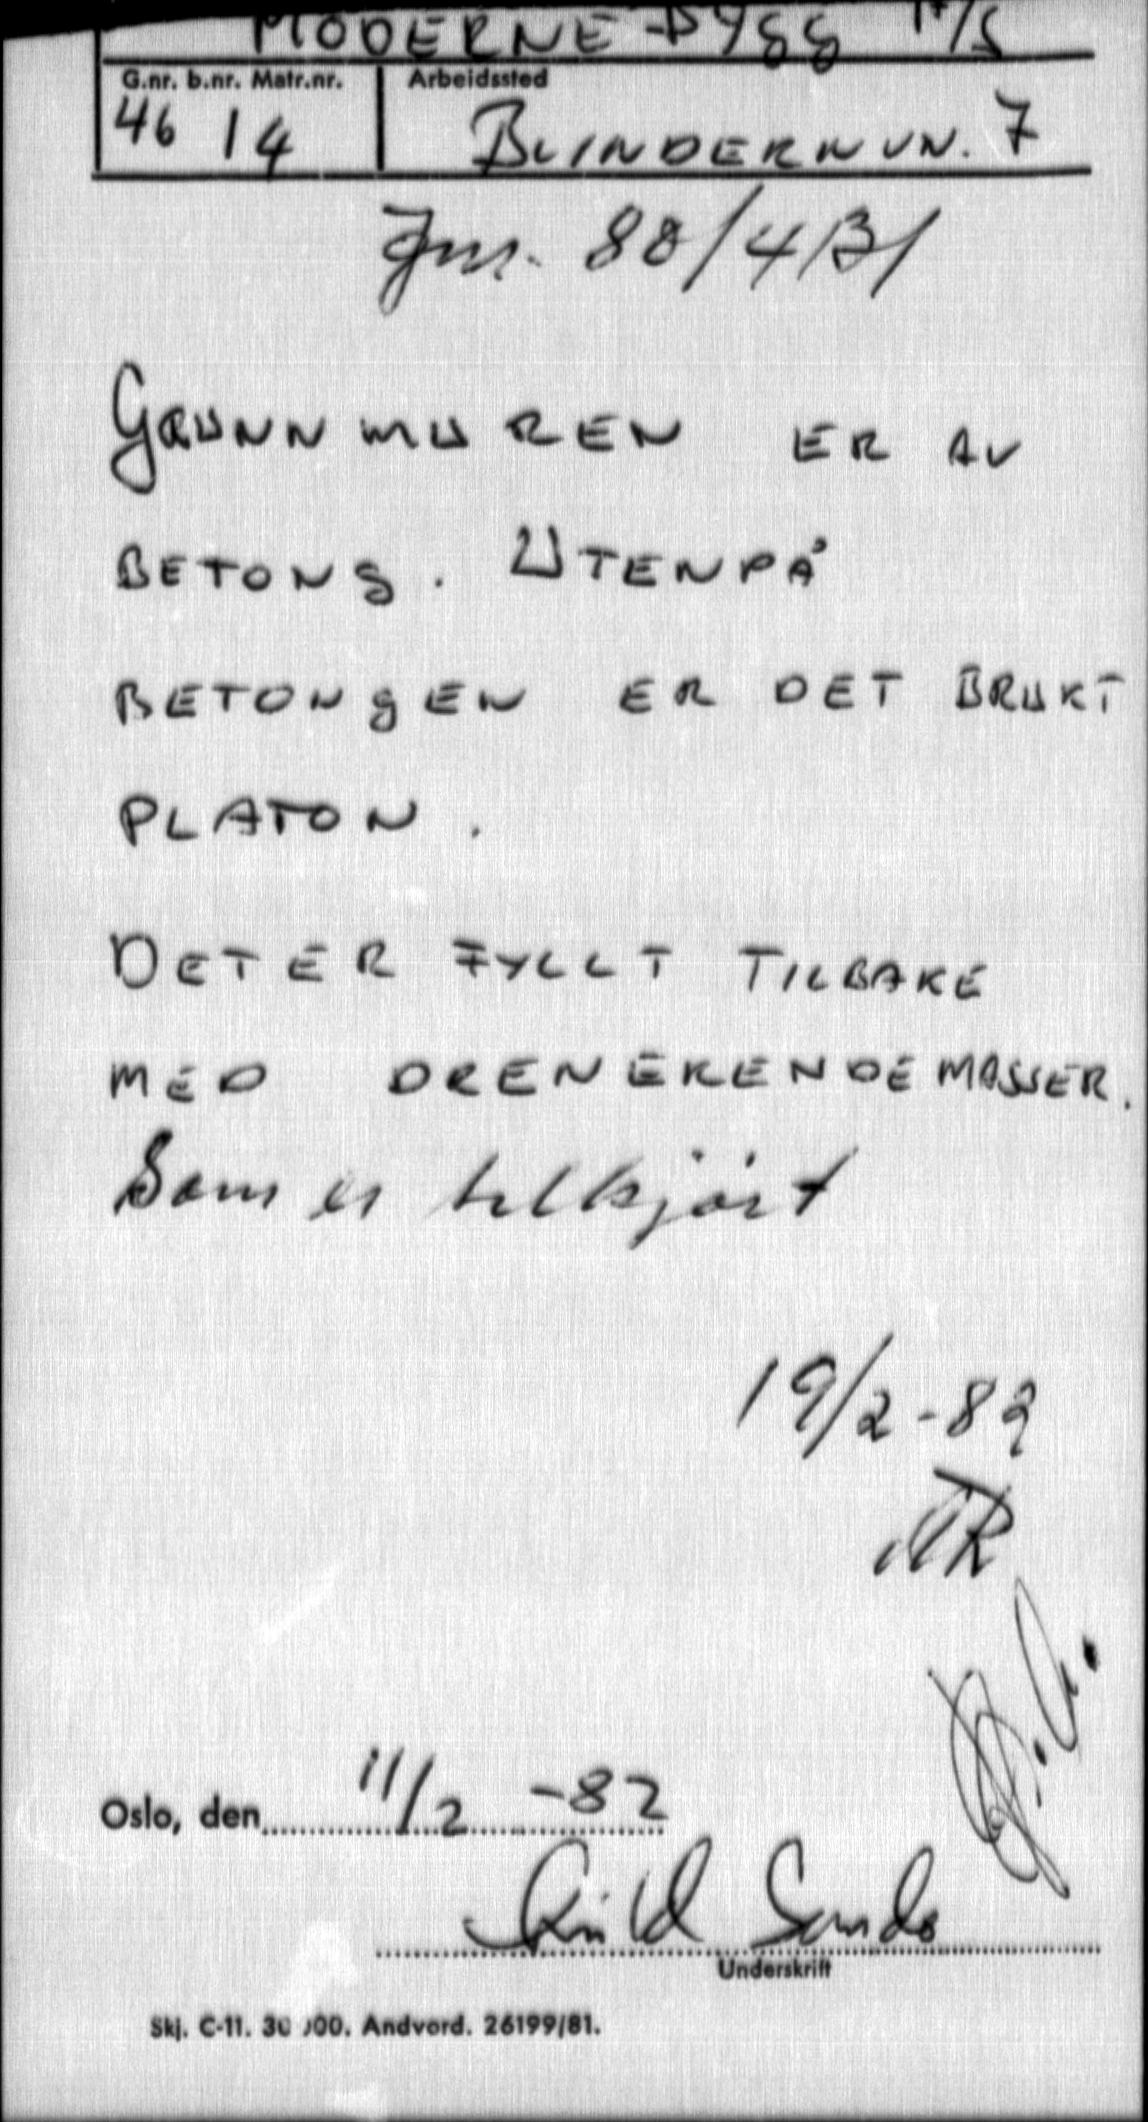 MODERNE BYGG A/S
G.nr. b.nr. Matr.nr. Arbeidssted
46 14 BLINDERNVN. 7
Jnr. 88/4131
GRUNNMUREN ER AV
BETONG. UTENPÅ
BETONGEN ER DET BRUKT
PLATON.
DET ER FYLLT TILBAKE
MED DRENERENDE MASSER.
Som er tilkjört
19/2-82
Oslo, den 11/2 -82
Sando
Underskrift
Skj. C-11. 30 000. Andvord. 26199/81.